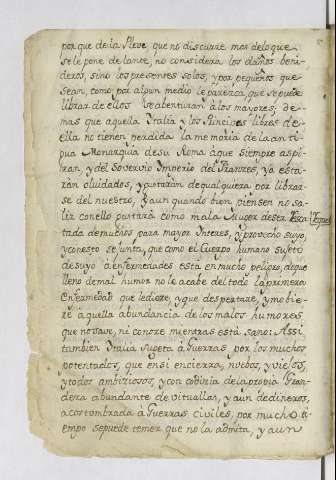 porque de la Pleve que no discurre mas de loque
se le pone de lante, no considera los daños beni-
deros, sino los presentes solos, y por pequeños que
sean, como por algun medio le parezca que se puede
librar de ellos se abenturan à los mayores, de-
mas que aquella Ytalia y los Principes libres de
ella no tienen perdida la memoria de la anti-
gua Monarquia de su Roma àque siempre aspi-
ran, y del Sovervio Imperio del Franzes, ya esta-
ràn olvidados, y gustaràn de qualquiera por librar-
se del nuestro, y aun quando bien piensen no sa-
lir con ello gustarà como mala Muger de ser
tada de muchos para mayor Interes, y provecho suyo,
y con esto se junta, que como el Cuerpo humano sugeto
de suyo à enfermedades està en mucho peligro, de que
lleno de mal humor no le acabe del todo la primera
Enfermedad que le diere, y que despertare, y mobie-
re aquella abundancia de los malos humores
que no save, ni conoze mientras està sano: Assi
tambien Ytalia sugeta à Guerras por los muchos
potentados, que en si encierra, nuebos, y viejos,
y todos ambiziosos, y con codizia de la propia Gran-
deza abundante de vituallas, y aun de dineros,
acostumbrada à Guerras civiles, por mucho ti-
empo se puede temer que no la admita, y aun